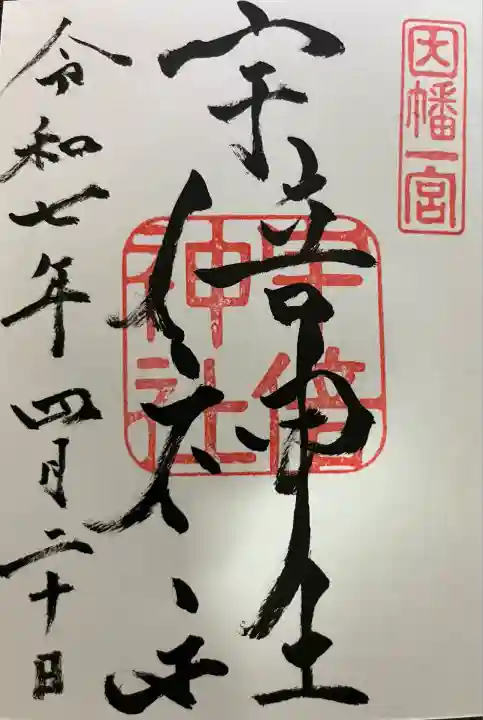 因幡一宮
宇倍神社
宇倍神社
令和七年四月二十日